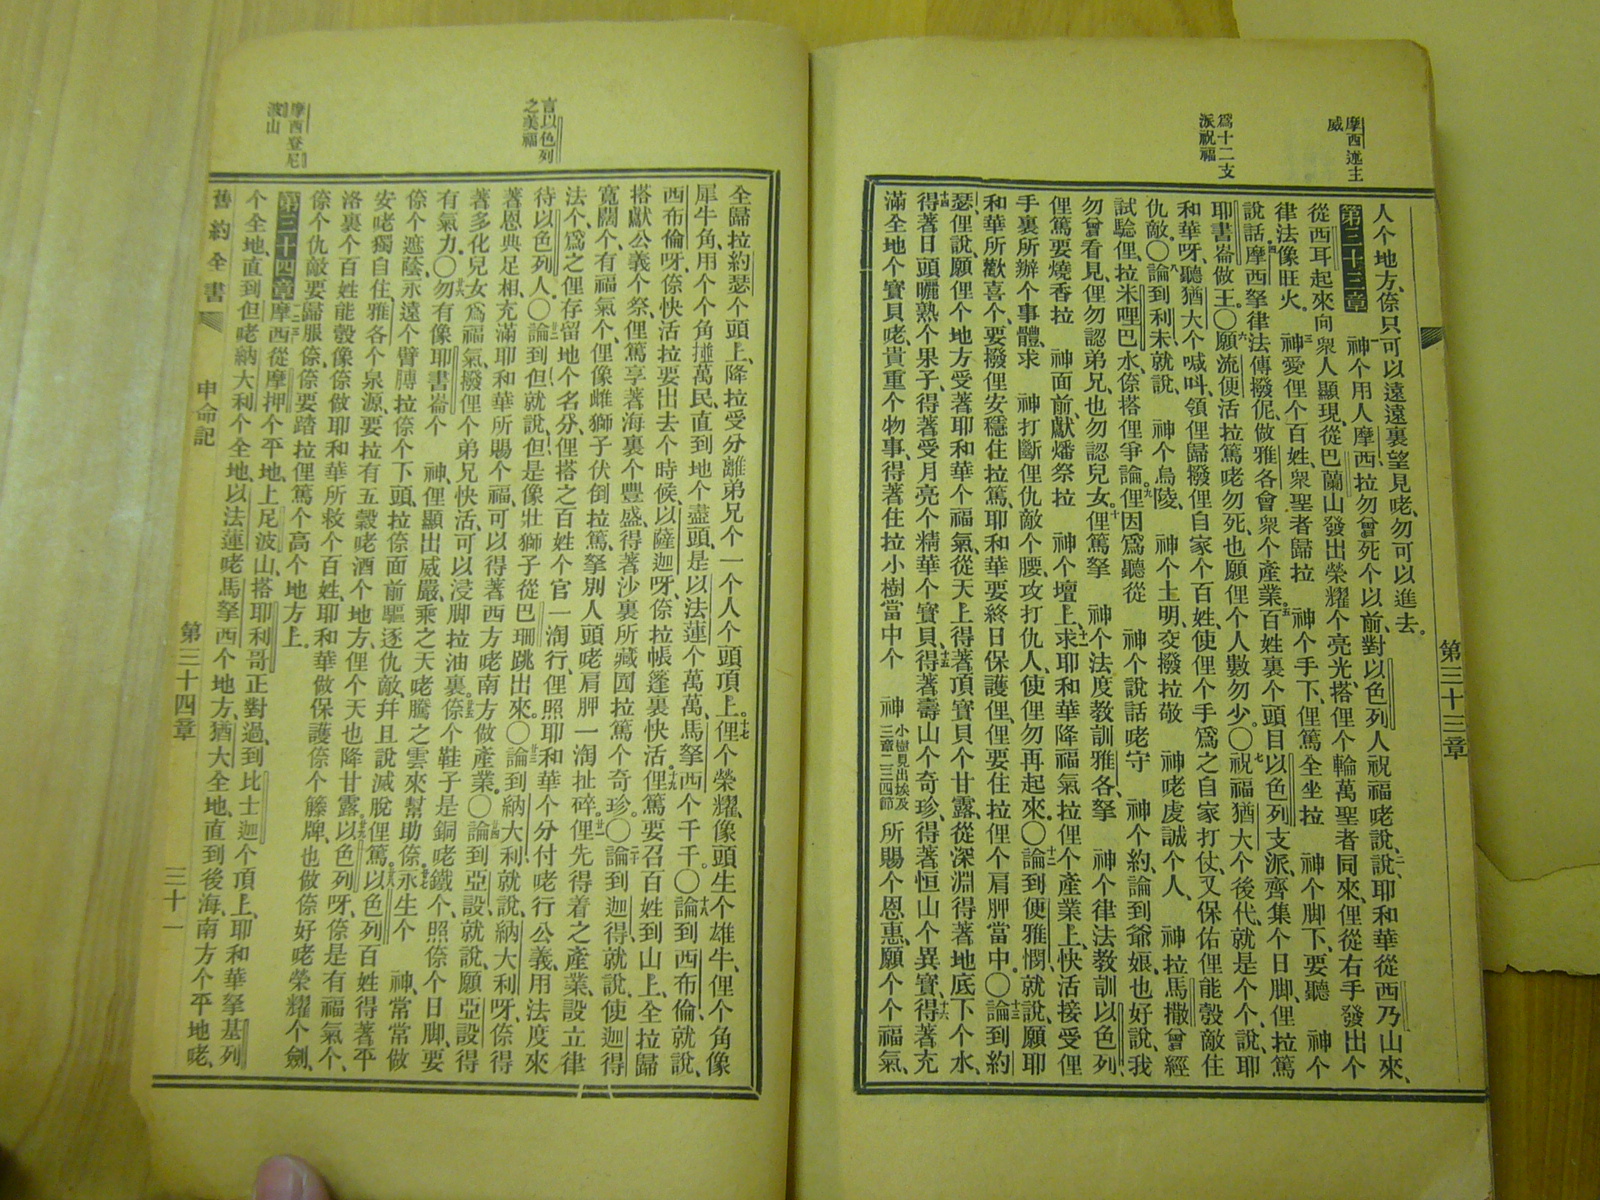 摩西述主
威
爲十二支
派祝福
第三十三章
人个地方、倷只可以遠遠裏望見咾、勿可以進去。
第三十三章 神个用人摩西、拉勿曾死个以前、對以色列人祝福咾說、說、耶和華從西乃山來、
從西耳起來向衆人顯現、從巴蘭山發出榮耀个亮光、搭俚个輪萬聖者同來、俚從右手發出个
律法像旺火。 神愛俚个百姓、衆聖者歸拉 神个手下、俚篤全坐拉 神个脚下、要聽 神个
說話摩西拏律法傳撥伲、做雅各會衆个產業。百姓裏个頭目、以色列支派、齊集个日脚、俚拉篤
耶書崙做王。〇願流便活拉篤咾勿死、也願俚个人數勿少。〇祝福猶大个後代、就是个个、說、耶
和華呀、聽猶大个喊呌、領俚歸撥俚自家个百姓、使俚个手爲之自家打仗、又保佑俚能彀敵住
仇敵。〇論到利未就說、 神个烏陵、 神个土明、交撥拉敬 神咾虔誠个人、 神拉馬撒曾經
試驗俚、拉米哩巴水、倷搭俚爭論。俚因爲聽從 神个說話咾守 神个約、論到爺娘、也好說、我
勿曾看見、俚勿認弟兄、也勿認兒女。俚篤拏 神个法度教訓雅各、拏 神个律法教訓以色列、
俚篤要燒香拉 神面前、獻燔祭拉 神个壇上、求耶和華降福氣拉俚个產業上、快活接受俚
手裏所辦个事體、求 神打斷俚仇敵个腰、攻打仇人、使俚勿再起來。〇論到便雅憫就說、願耶
和華所歡喜个、要撥俚安穩住拉篤、耶和華要終日保護俚、俚要住拉俚个肩胛當中。〇論到約
瑟、俚說、願俚个地方受著耶和華个福氣、從天上得著頂寶貝个甘露、從深淵得著地底下个水、
得著日頭曬熟个果子、得著受月亮个精華个寶貝、得著壽山个奇珍、得著恒山个異寶、得著充
滿全地个寶貝咾貴重个物事、得著住拉小樹當中个 神小樹見出埃及三章二三四節所賜个恩惠、願个个福氣、
言以色列
之美福
摩西登尼
波山
全歸拉約瑟个頭上、降拉受分離弟兄个一个人个頭頂上。俚个榮耀、像頭生个雄牛、俚个角像
犀牛角、用个个角撞萬民、直到地个盡頭、是以法蓮个萬萬、馬拏西个千千。〇論到西布倫、就說、
西布倫呀、倷快活拉要出去个時候、以薩迦呀、倷拉帳篷裏快活。俚篤要召百姓到山上、全拉歸
搭獻公義个祭、俚篤享著海裏个豐盛、得著沙裏所藏囥拉篤个奇珍。〇論到迦得、就說、使迦得
寬闊个、有福氣个、俚像雌獅子伏倒拉篤、拏別人頭咾肩胛一淘扯碎。俚先得着之產業、設立律
法个、爲之俚存留地个名分、俚搭之百姓个官一淘行、俚照耶和華个分付咾行公義、用法度來
待以色列人。〇論到但、就說、但是像壯獅子從巴珊跳出來。〇論到納大利、就說、納大利呀、倷得
著恩典足相、充滿耶和華所賜个福、可以得著西方咾南方做產業。〇論到亞設、就說、願亞設得
著多化兒女爲福氣、撥俚个弟兄快活、可以浸脚拉油裏。倷个鞋子是銅咾鐵个、照倷个日脚、要
有氣力。〇勿有像耶書崙个 神、俚顯出威嚴、乘之天咾騰之雲來幫助倷。永生个 神、常常做
倷个遮蔭、永遠个臂膊、拉倷个下頭、拉倷面前驅逐仇敵、幷且說、滅脫俚篤。以色列百姓得著平
安咾獨自住、雅各个泉源、要拉有五穀咾酒个地方、俚个天也降甘露。以色列呀、倷是有福氣个、
洛裏个百姓能彀像倷、做耶和華所救个百姓、耶和華做保護倷个籐牌、也做倷好咾榮耀个劍、
倷个仇敵要歸服倷、倷要踏拉俚篤个高个地方上。
第三十四章 摩西從摩押个平地、上尼波山、搭耶利哥正對過、到比士迦个頂上、耶和華拏基列
个全地、直到但咾納大利个全地、以法蓮咾馬拏西个地方、猶大全地、直到後海、南方个平地咾、
舊約全書 申命記 第三十四章 三十一